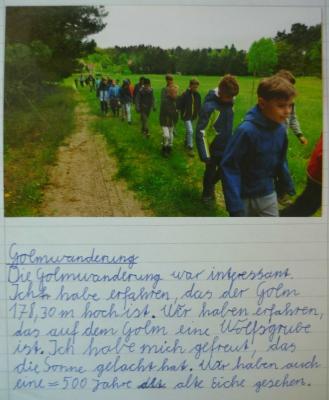 Golmwanderung
Die Golmwanderung war interessant.
Ich habe erfahren, das der Golm
178,30 m hoch ist. Wir haben erfahren,
das auf dem Golm eine Wolfsgrube
ist. Ich habe mich gefreut, das
die Sonne gelacht hat. Wir haben auch
eine ≈ 500 Jahre alte Eiche gesehen.